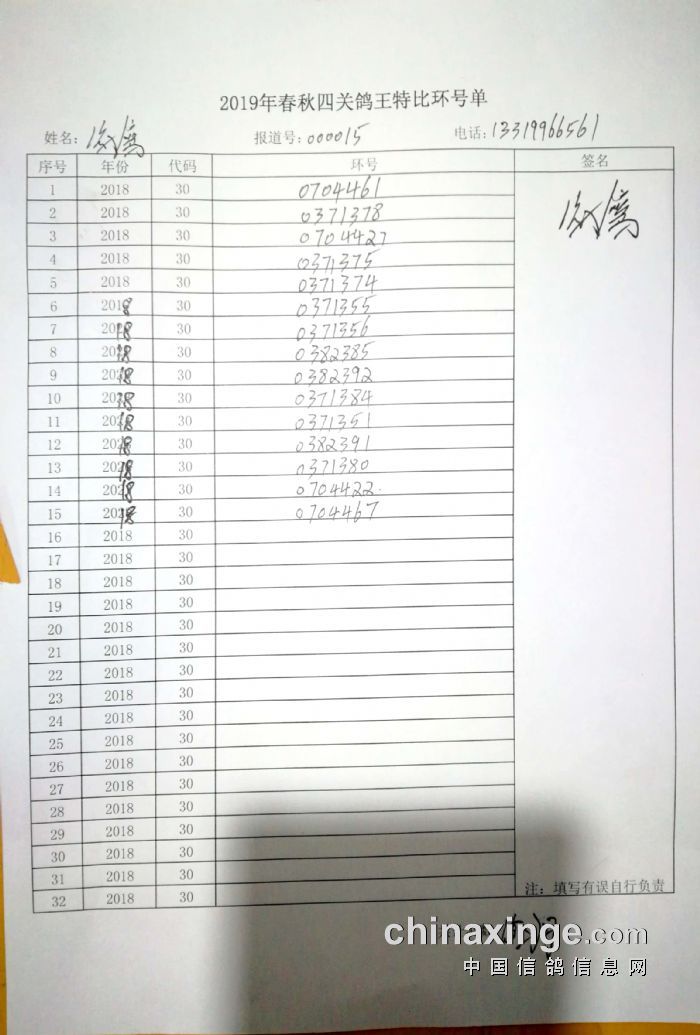 2019年春秋四关鸽王特比环号单
姓名: 报道号: 000015 电话: 13319966561
序号 年份 代码 环号 签名
1 2018 30 0704461
2 2018 30 0371378
3 2018 30 0704427
4 2018 30 0371375
5 2018 30 0371374
6 2018 30 0371355
7 2018 30 0371356
8 2018 30 0382385
9 2018 30 0382392
10 2018 30 0371384
11 2018 30 0371351
12 2018 30 0382391
13 2018 30 0371380
14 2018 30 0704422
15 2018 30 0704467
16 2018 30
17 2018 30
18 2018 30
19 2018 30
20 2018 30
21 2018 30
22 2018 30
23 2018 30
24 2018 30
25 2018 30
26 2018 30
27 2018 30
28 2018 30
29 2018 30
30 2018 30
31 2018 30
32 2018 30
注: 填写有误自行负责
chinaxinge.com
中国信鸽信息网